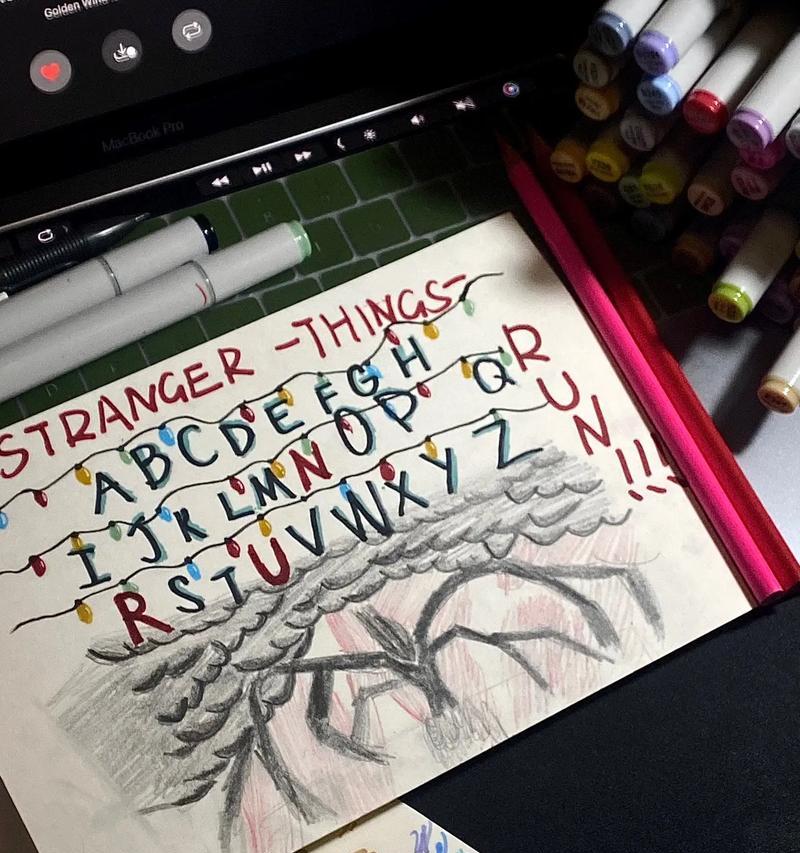 Golden
MacBook Pro
STRANGER -THINGS-
A B C D E F G H
I J K L M N O P Q
R S T U V W X Y Z
RUN!!!